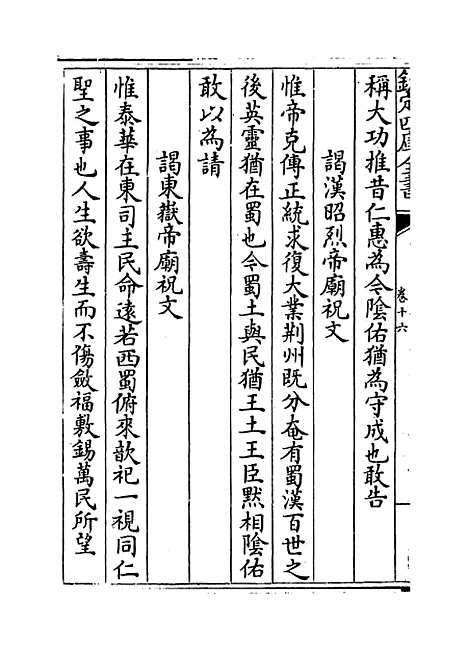 欽定四庫全書
卷十六
稱大功推昔仁惠為今陰佑猶為守成也敢告
謁漢昭烈帝廟祝文
惟帝克傳正統求復大業荆州既分奄有蜀漢百世之
後英靈猶在蜀也今蜀土與民猶王土王臣默相陰佑
敢以為請
謁東嶽帝廟祝文
惟泰華在東司主民命遠若西蜀俯來歆祀一視同仁
聖之事也人生欲壽生而不傷斂福敷錫萬民所望